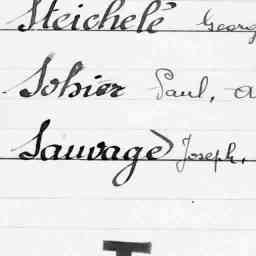 Steichelé Georg
Sohier Paul, a
Sauvage Joseph,
T